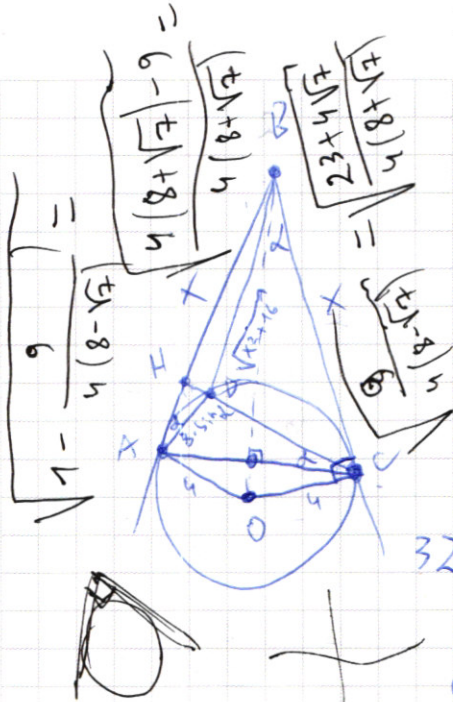 √(1 - 9/(4(8-√7))) =
= √((4(8+√7) - 9)/(4(8+√7))) =
√((23+4√7)/(4(8+√7)))
= √(9/(4(8-√7)))
B
α
x
x
√x²+16
H
α
8·sinα
A
α
C
4
4
O
32